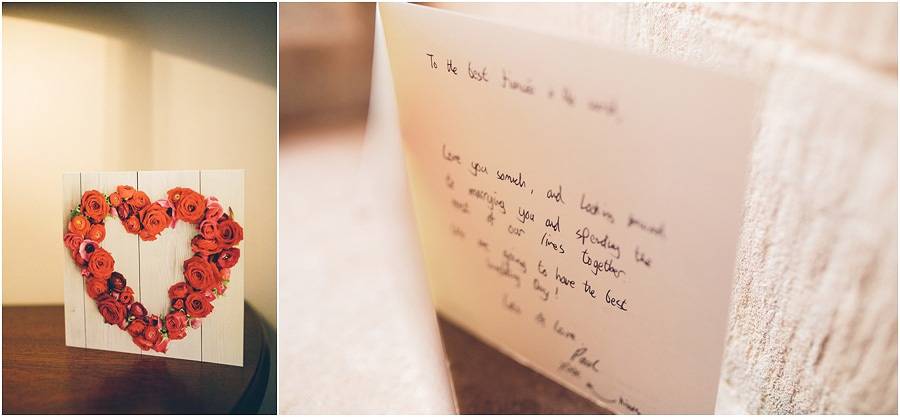 To the best fiancée in the world,
Love you somuch, and looking forward
to marrying you and spending the
rest of our lives together.
We are going to have the best
Wedding Day!
Lots of Love,
Paul